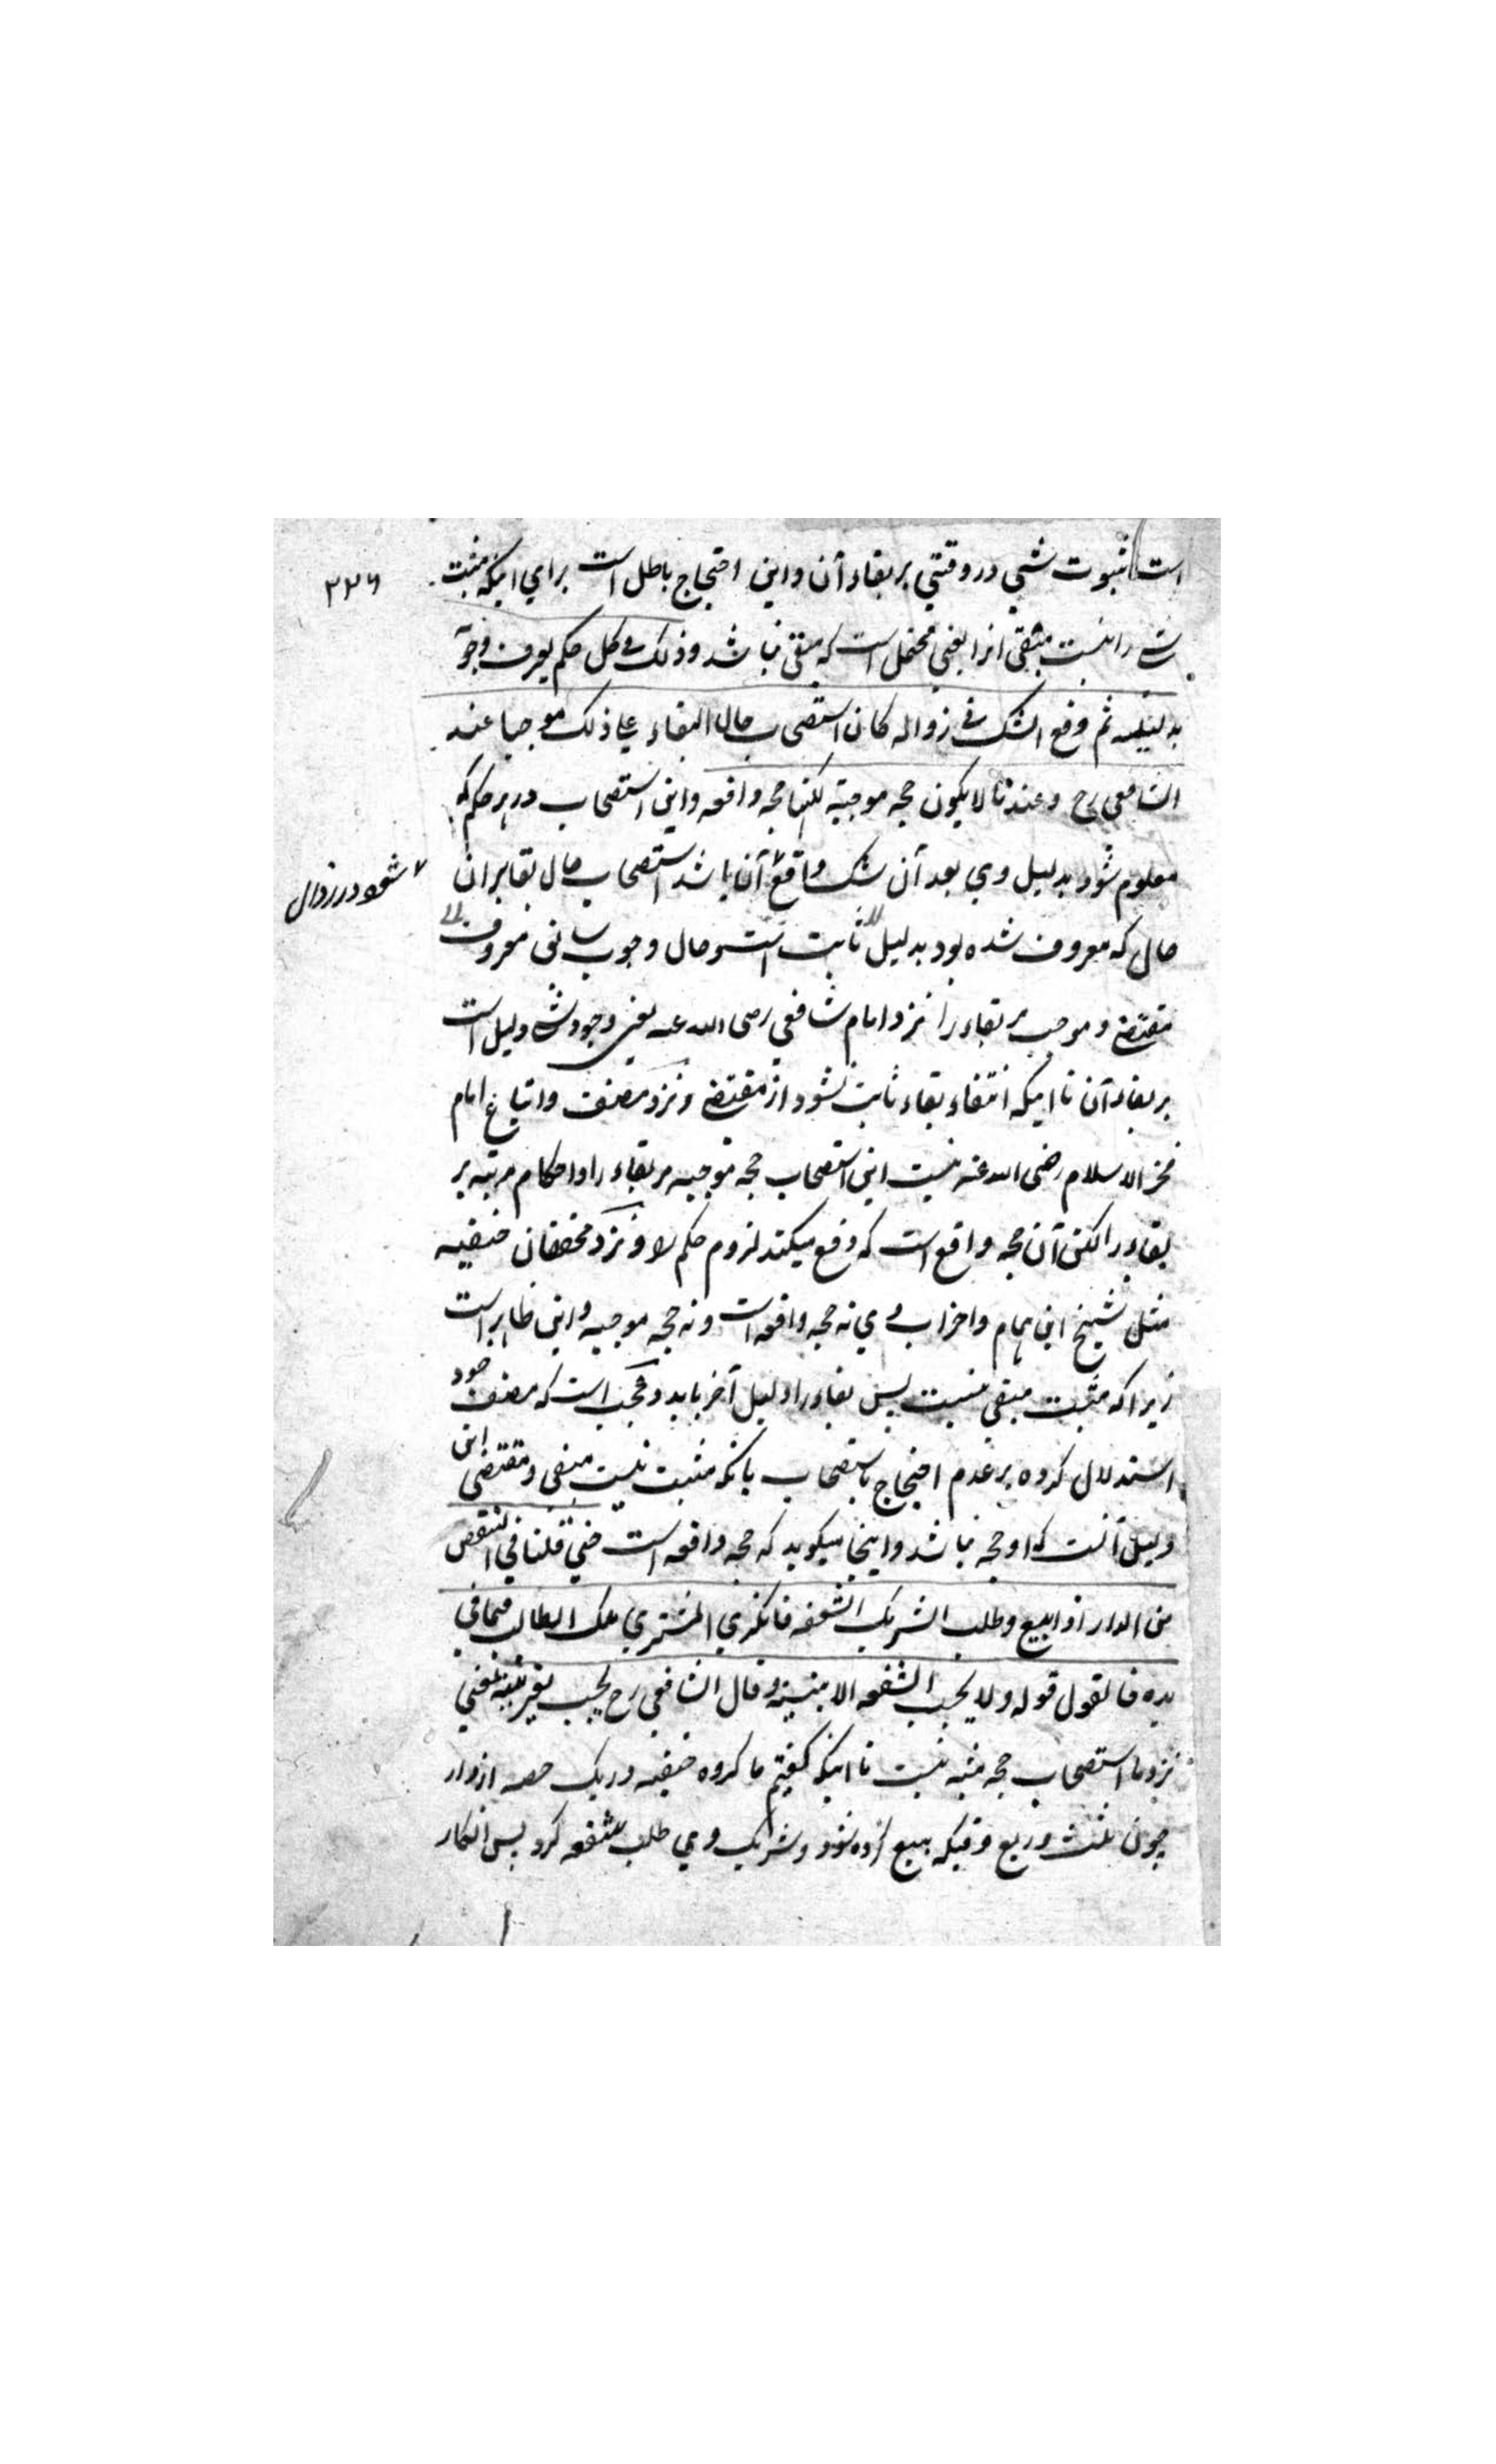 است ثبوت شي در وقتي بر بقاء آن و اين احتجاج باطل است براي اينكه مثبت
۲۲۶
شے را نيست مبقي از ايعني محتمل است كه مبقي نباشد و ذلك في كل حكم يعرف وجوبه
بدليله ثم وقع الشك في زواله كان استصحاب حال البقاء علي ذلك موجبا عند
الشافعي رح و عندنا لا يكون حجه موجبته لكنها حجه دافعه و اين استصحاب در هر حكم كه
معلوم شود بدليل وي بعد آن شك واقع آن باشد استصحاب حال بقا بران
شود در زوال
حال كه معروف شده بود بدليل ثابت است و حال وجوب معروف
مقتضے و موجب مر بقاء را نزد امام شافعي رضى الله عنه يعني وجود شے دليل است
بر بقاء آن تا اينكه انتفاء بقاء ثابت نشود از مقتضے و نزد مصنف و اتباع امام
فخر الاسلام رضى الله عنه نيست اين استصحاب حجه موجبه مر بقاء را و احكام مرتبه بر
بقاء را لكن آن حجه دافع است كه دفع ميكند لزوم حكم را و نزد محققان حنفيه
مثل شيخ ابن همام و احزاب وي نه حجه دافعه است و نه حجه موجبه و اين ظاهر است
زيرا كه مثبت مبقي نيست پس بقاء را دليل آخر بايد و عجب است كه مصنف خود
استدلال كرده بر عدم احتجاج باستصحاب بانكه مثبت نيست مبقي و مقتضى اين
دليل آنست كه او حجه نباشد و اينجا ميگويد كه حجه دافعه است حتي قلنا في الشقص
من الدار اذا بيع و طلب الشريك الشفعه فانكر المشتري ملك الطالب فيما في
يده فالقول قوله و لا يجب الشفعه الا ببينة و قال الشافعي رح يجب بغير بينة يعني
نزد ما استصحاب حجه مثبته نيست تا اينكه گفتيم ما گروه حنفيه در يك حصه از دار
چون ثلث و ربع وقتيكه بيع كرده شود و شريك وي طلب شفعه كرد پس انكار